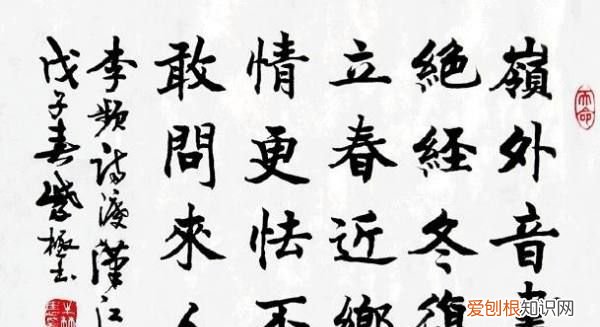 嶺外音書
絶經冬復
立春近鄉
情更怯不
敢問來人
李頻詩渡漢江
戊子春紫極书
爱刨根知识网